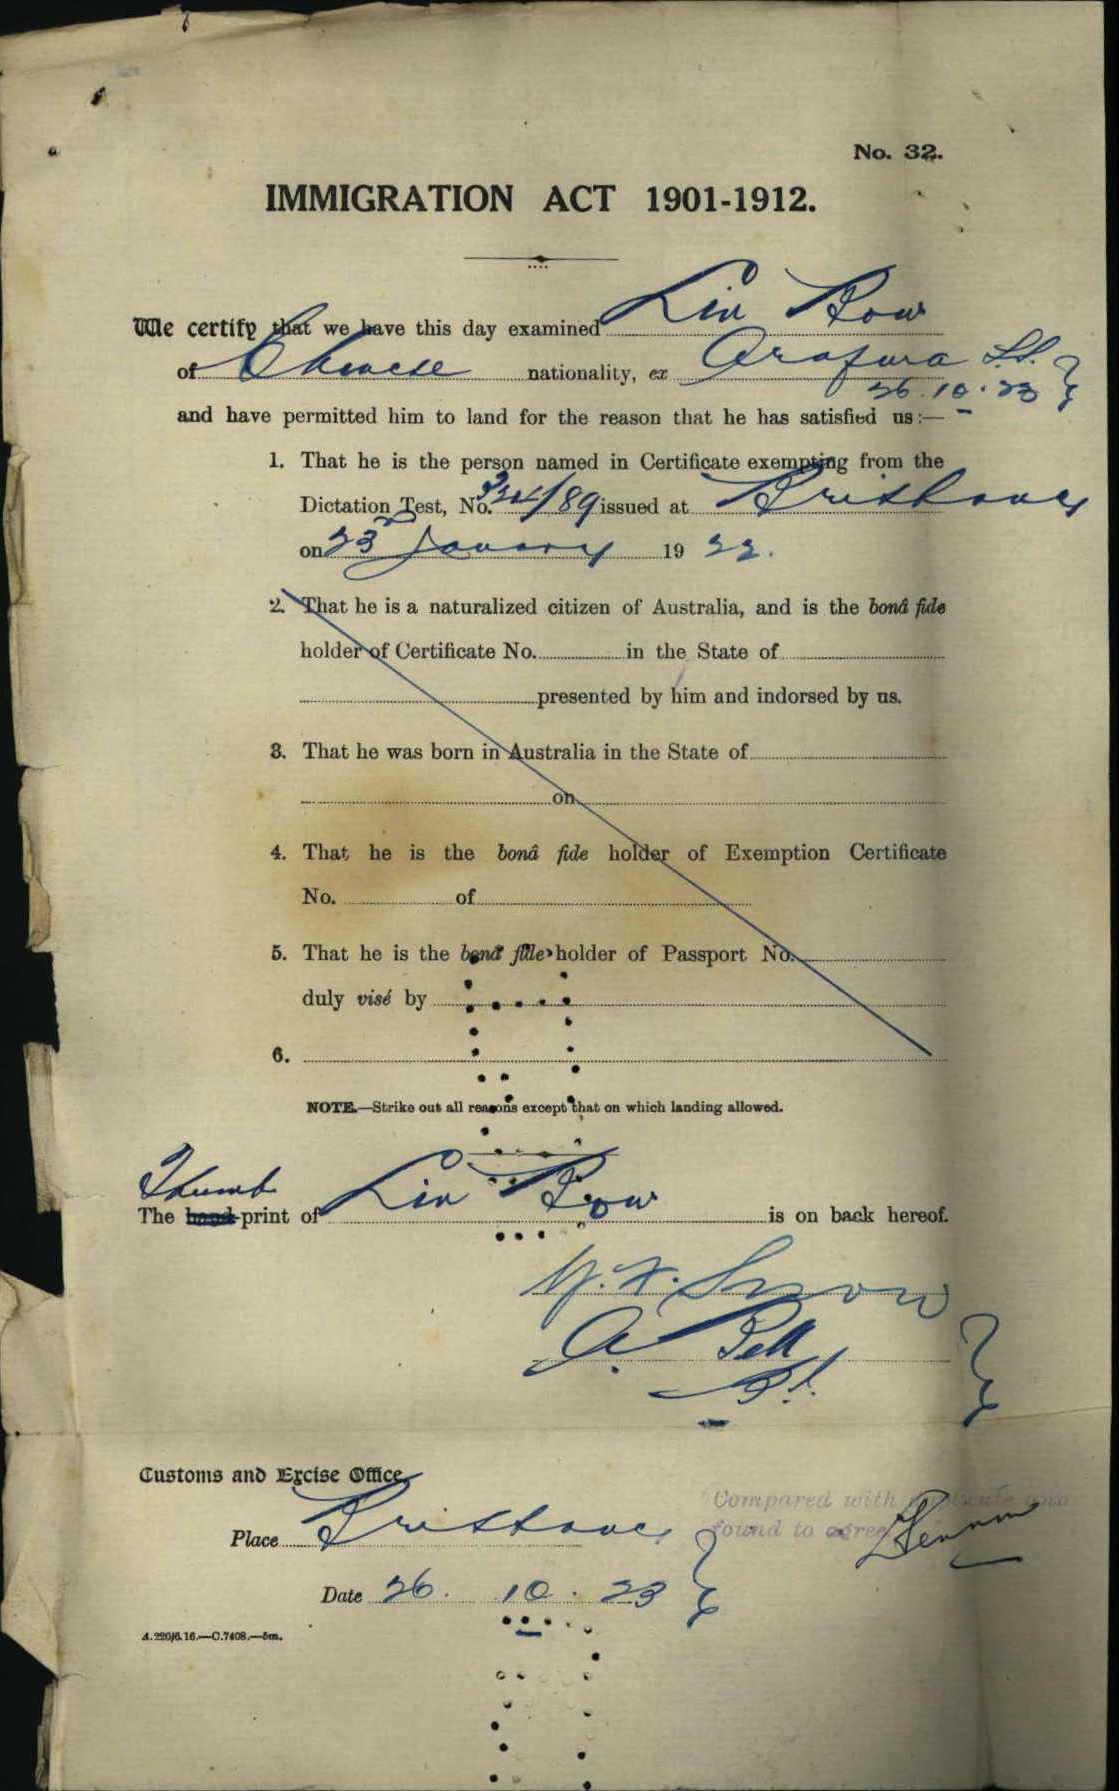 No. 32.
IMMIGRATION ACT 1901-1912.
We certify that we have this day examined Lin Bow
of Chinese nationality, ex Arafura S.S.
26.10.23
and have permitted him to land for the reason that he has satisfied us:—
1. That he is the person named in Certificate exempting from the
Dictation Test, No. 334/89 issued at Brisbane
on 23rd January 1922.
2. That he is a naturalized citizen of Australia, and is the bonâ fide
holder of Certificate No. in the State of
presented by him and indorsed by us.
3. That he was born in Australia in the State of
on
4. That he is the bonâ fide holder of Exemption Certificate
No. of
5. That he is the bonâ fide holder of Passport No.
duly visé by
6.
NOTE.—Strike out all reasons except that on which landing allowed.
Thumb
The hand-print of Lin Bow is on back hereof.
Snow
A Bell
Customs and Excise Office,
Compared with and
Place Brisbane found to agree
Date 26. 10. 23
A.220/6.16.—C.7408.—5m.